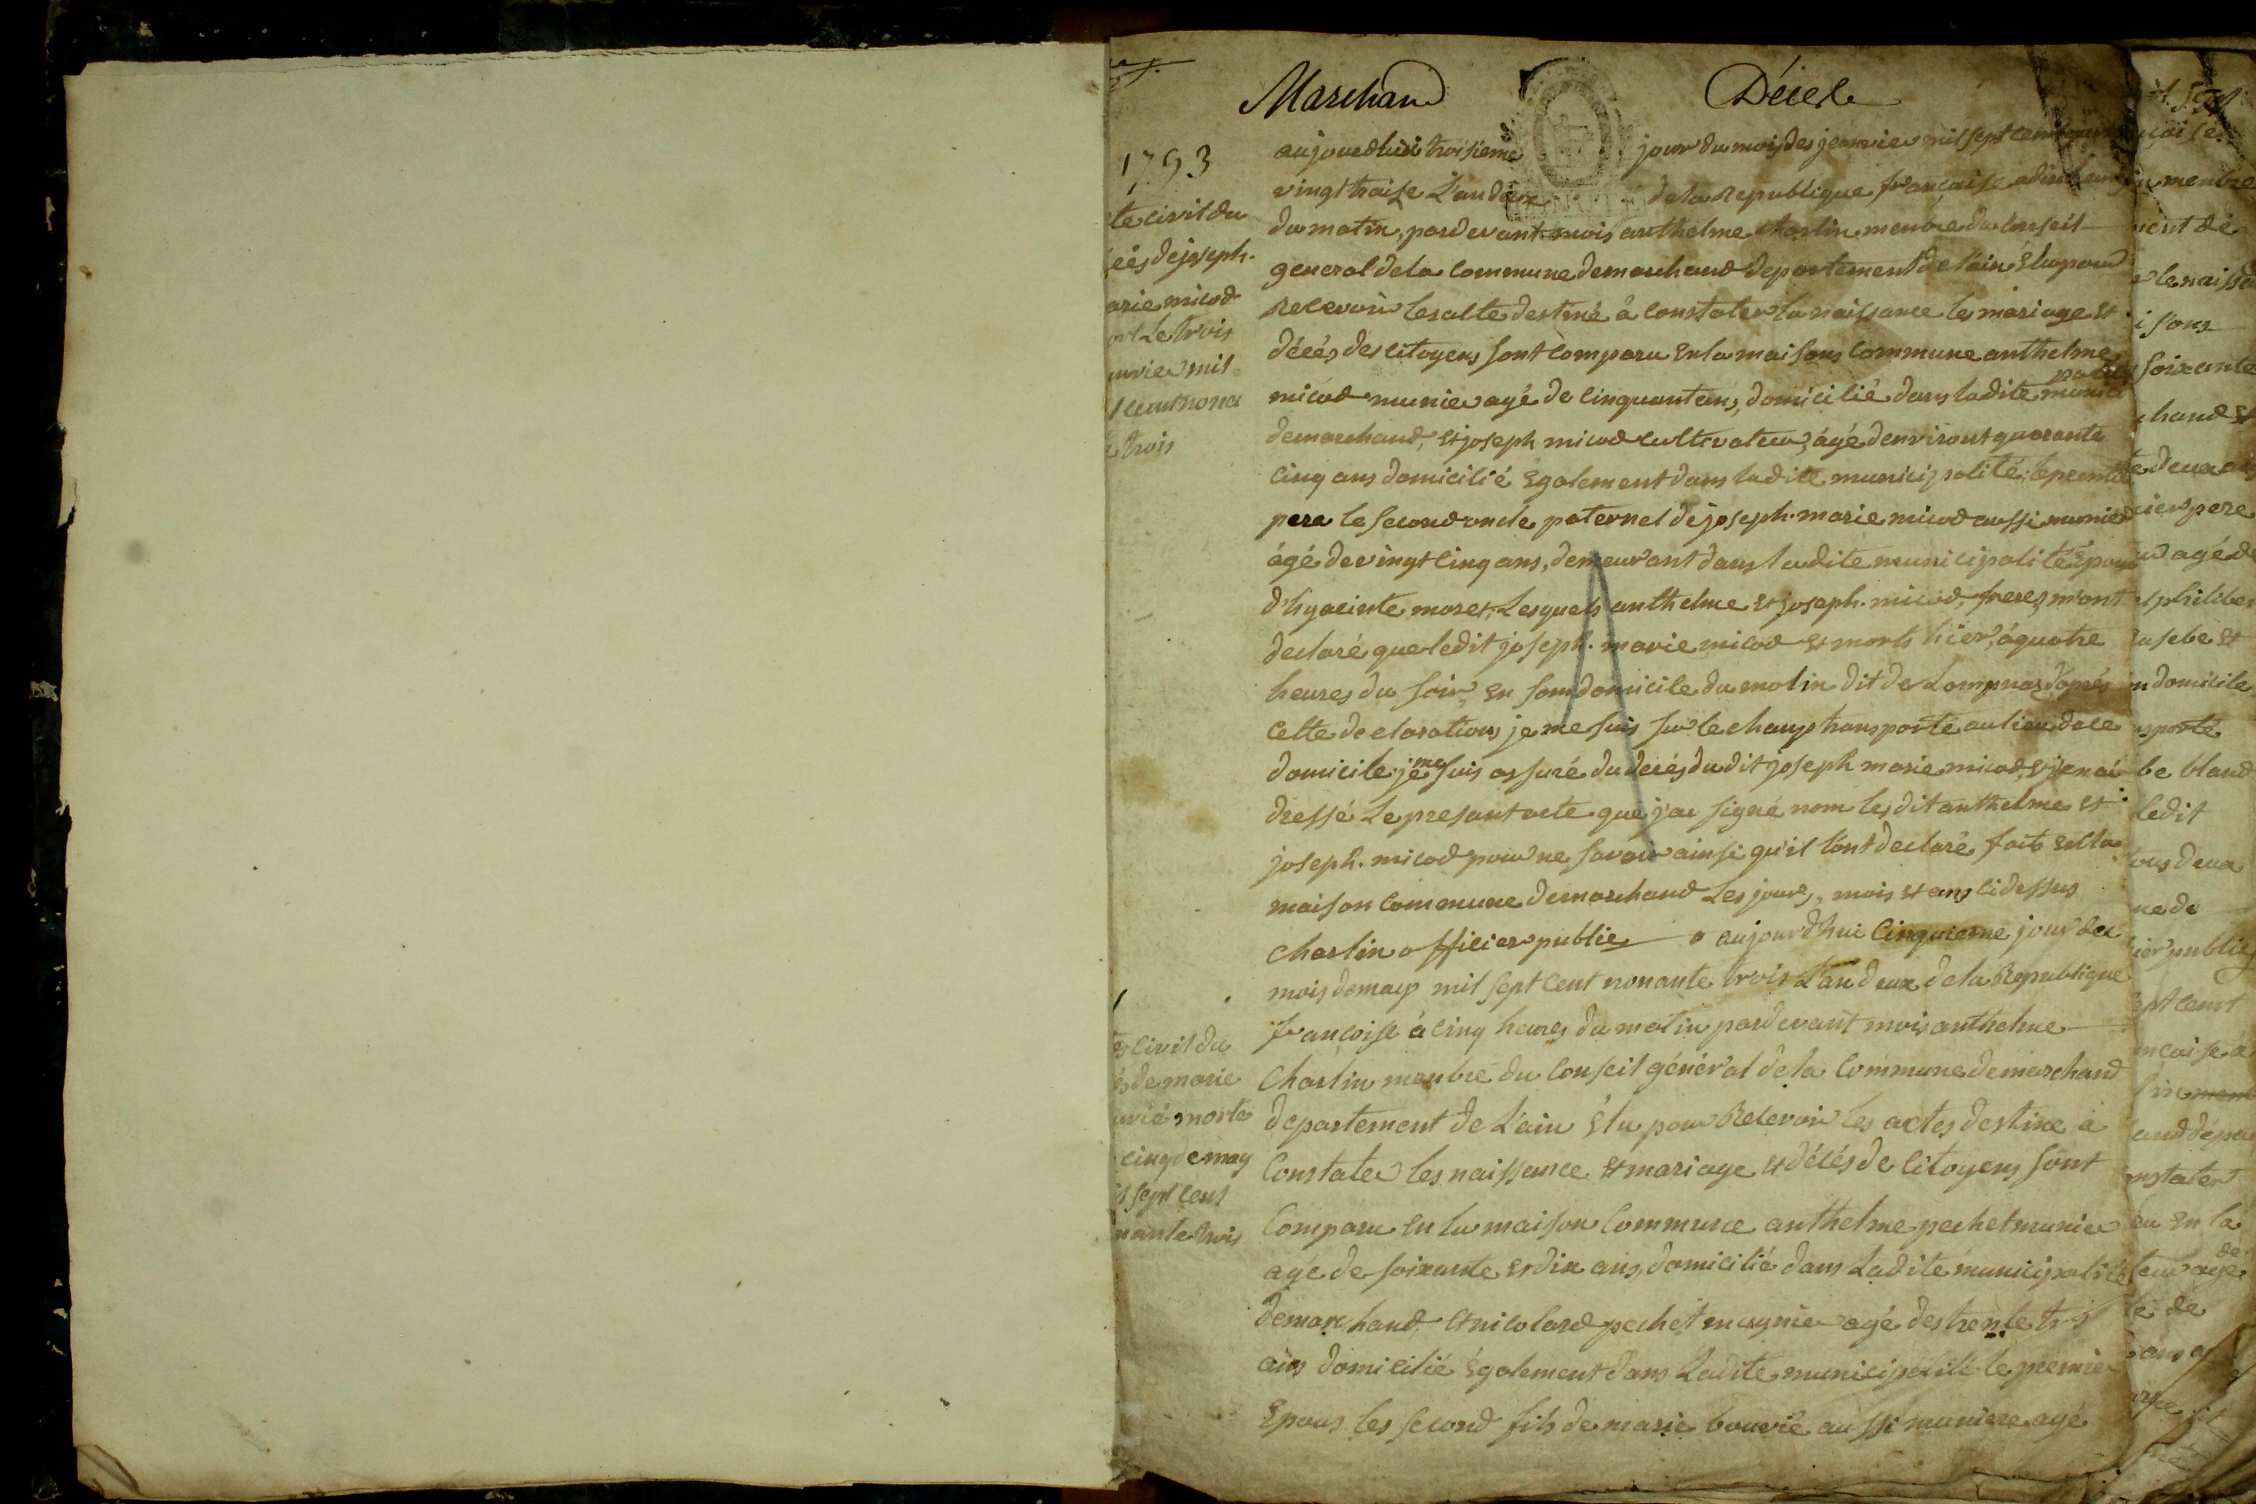 Marchand Décés
1793
aujourdhui troisieme jour du mois des jeanvier mil sept cent
vingt traise L'an deux de la Republique francaise
du matin, pardevant mois anthelme charlin menbre du conseil
general de la commune demarchand departement de l'ain Elu pour
Recevoir les alte destiné à constater la naissance les mariage et
décés des citoyens sont comparu en la maisons commune anthelme
micod munier agé de cinquant ans, domicilié dans ladite munici
palité
demarchand, et joseph micod cultivateur, agé d'environt quarante
cinq ans domicilié Egalement dans ladite municipalité, le premier
pere le second oncle paternel de joseph-marie micod aussi munier
âgé de vingt cinq ans, demeurant dans ladite municipalité Epoux
d'hyacinte moret, Lesquels anthelme et joseph micod, freres, m'ont
declaré que ledit joseph marie micod et morts hier, à quatre
heures du soir, en son domicile du molin dit de Lompnas, d'aprés
cette declarations je me suis sur le champ transporté au lieu de ce
domicile je me suis assuré du decés du dit joseph marie micod, et j'en ai
dressé Le presant acte que j'ai signé nom les dit anthelme et
joseph. micod pour ne savoir ainsi qu'il l'ont declaré fait en la
maison commune demarchand Les jours, mois et ans cidessus
charlin officier public aujourd'hui cinquieme jour du
mois de may mil sept cent nonante trois L'an deux de la Republique
francoise à cinq heures du matin pardevant mois anthelme
charlin menbre du conseil général de la commune demarchand
departement de L'ain Elu pour Recevoir les actes destine à
constater les naissance et mariage et décés de citoyens sont
comparu en la maison commune anthelme pechet munier
agé de soixante et dix ans, domicilié dans Ladite municipalité
demarchand et nicolard pechet mugnier agé des trente trois
ans domicilié Egalement dans Ladite municipalité le premier
Epous les second fils de marie bouvié aussi muniere agé
te civil du
cés de joseph.
arie micod
Le trois
nvier mil
cent nona
trois
civil du
de marie
uvié morte
cinq de may
sept cent
nante trois
menbre
ment de
soixante
hand et
deux
pere
agé de
et
domicile
bland
ledit
deux
de
public
cent
en la
de
agé
de